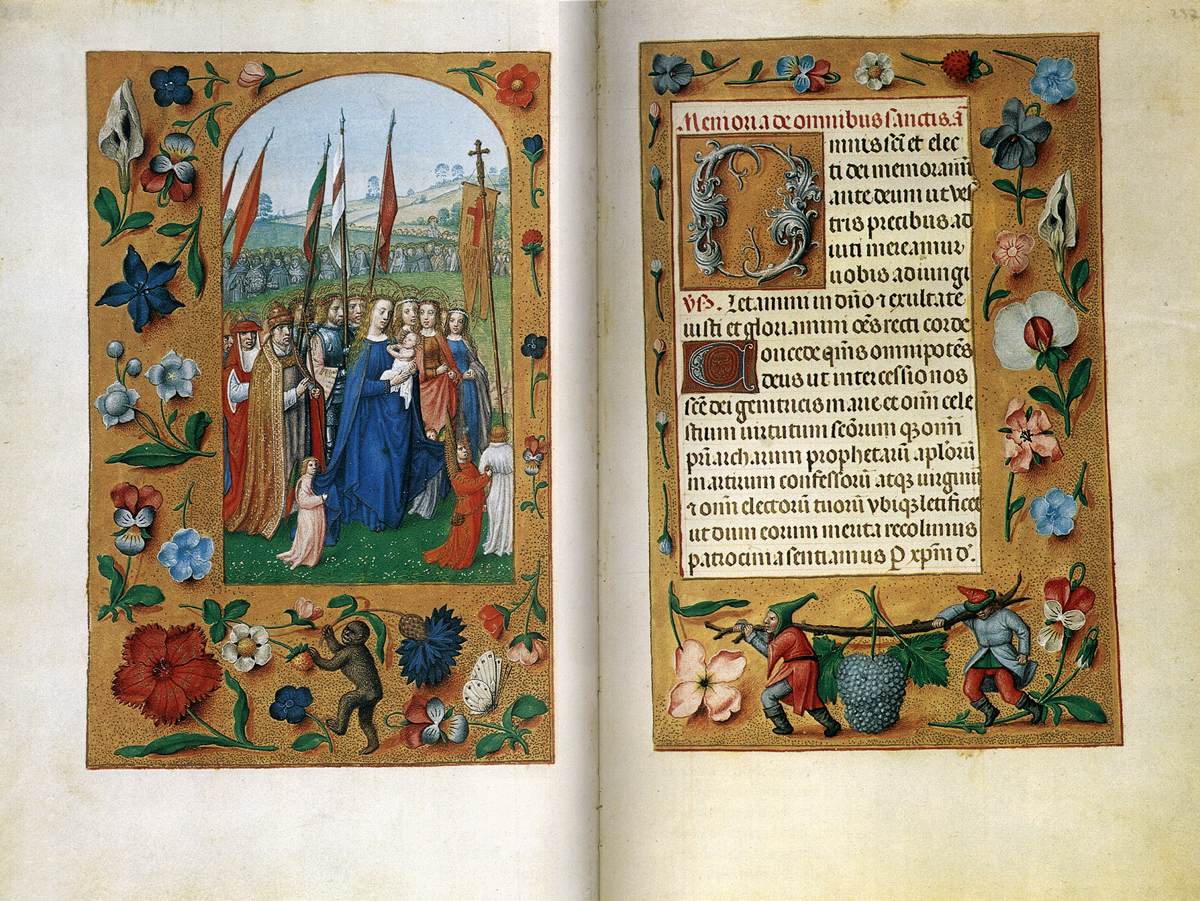 Memoria de omnibus sanctis. a͞
O mnes s͞ci et elec
ti dei memoramī
ante deum ut ves
tris precibus ad
iuti mereamur
uobis adiungi
v͞s. Letamini in dn̄o ⁊ exultate
iusti et gloriamini oēs recti corde
Concede q̄m̄s omnipotēs
deus ut intercessio nos
sc̄e dei genitricis marie et oīm cele
stium uirtutum sc̄orum q; omī
pr̄iarcharum prophetarū ap̄lorū
martirum confessorum atq; uirginū
⁊ omī electorū tuorū ubiq; letificet
ut dum eorum merita recolimus
patrocinia sentiamus P xp̄m d͞